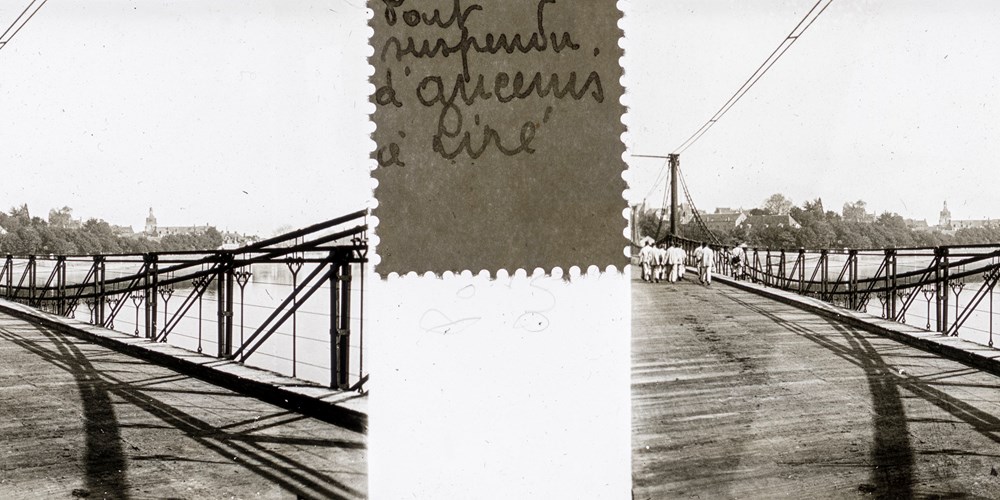 Pont
suspendu
d'Ancenis
à Liré